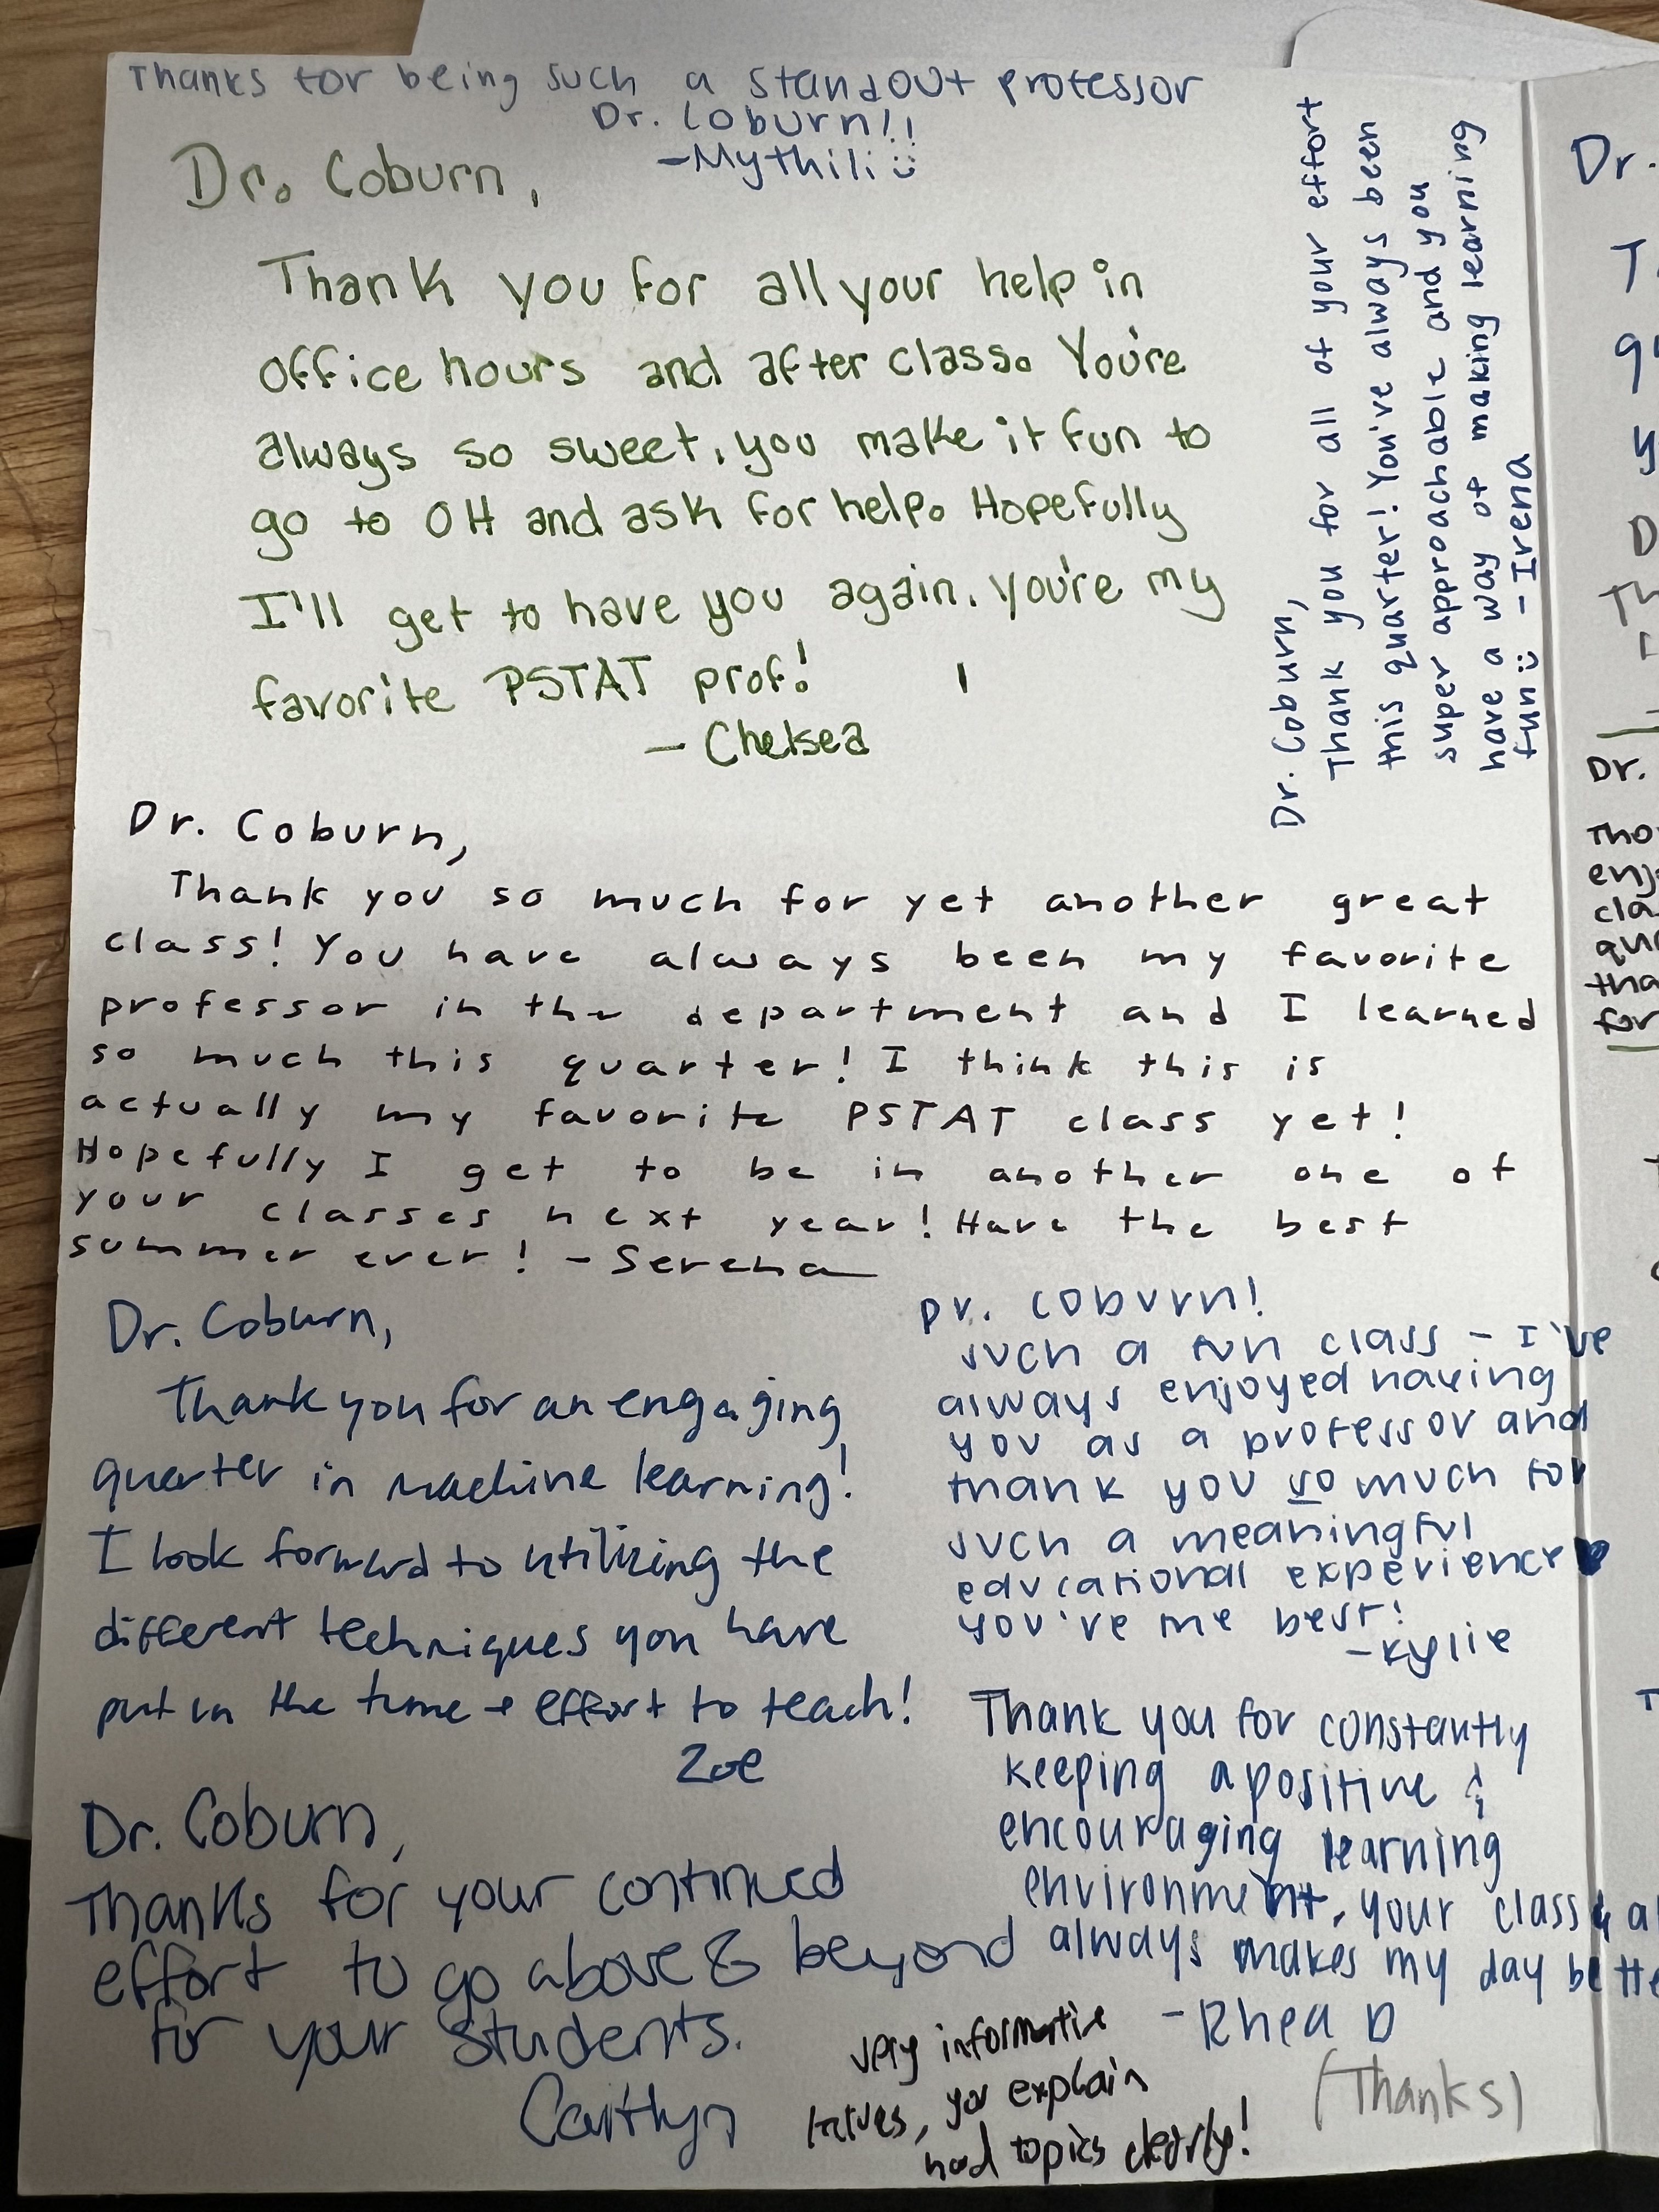 Thanks for being such a standout professor
Dr. Coburn!!
-Mythili :)
Dr. Coburn,
Thank you for all your help in
office hours and after class. You're
always so sweet, you make it fun to
go to OH and ask for help. Hopefully
I'll get to have you again. you're my
favorite PSTAT prof!
- Chelsea
Dr. Coburn,
Thank you for all of your effort
this quarter! You've always been
super approachable and you
have a way of making learning
fun :) -Irena
Dr. Coburn,
Thank you so much for yet another great
class! You have always been my favorite
professor in the department and I learned
so much this quarter! I think this is
actually my favorite PSTAT class yet!
Hopefully I get to be in another one of
your classes next year! Have the best
summer ever! - Serena
Dr. Coburn,
Thank you for an engaging
quarter in machine learning!
I look forward to utilizing the
different techniques you have
put in the time + effort to teach!
Zoe
Dr. Coburn!
such a fun class - I've
always enjoyed having
you as a professor and
thank you so much for
such a meaningful
educational experience ♥
you're the best!
-Kylie
Dr. Coburn,
Thanks for your continued
effort to go above & beyond
for your students.
Caitlyn
Thank you for constantly
keeping a positive &
encouraging learning
environment, your class
always makes my day bette
-Rhea D
very informative
you explain
topics clearly!
(Thanks)
Dr.
Dr.
for